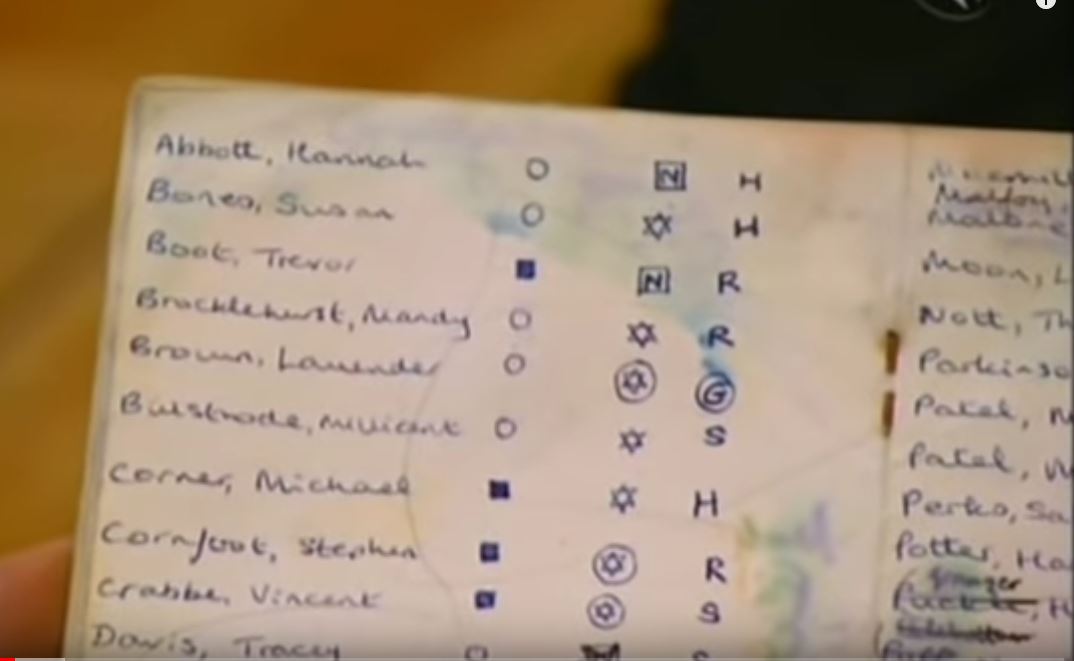 Abbott, Hannah ○ N H
Bones, Susan ○ ✡ H
Boot, Trevor ■ N R
Brocklehurst, Mandy ○ ✡ R
Brown, Lavender ○ ✡ G
Bulstrode, Millicent ○ ✡ S
Corner, Michael ■ ✡ H
Cornfoot, Stephen ■ ✡ R
Crabbe, Vincent ■ ✡ S
Davis, Tracey ○ S
Malfoy,
Malone
Moon, L
Nott, Th
Parkinso
Patel,
Patel,
Perks, Sa
Potter, Ha